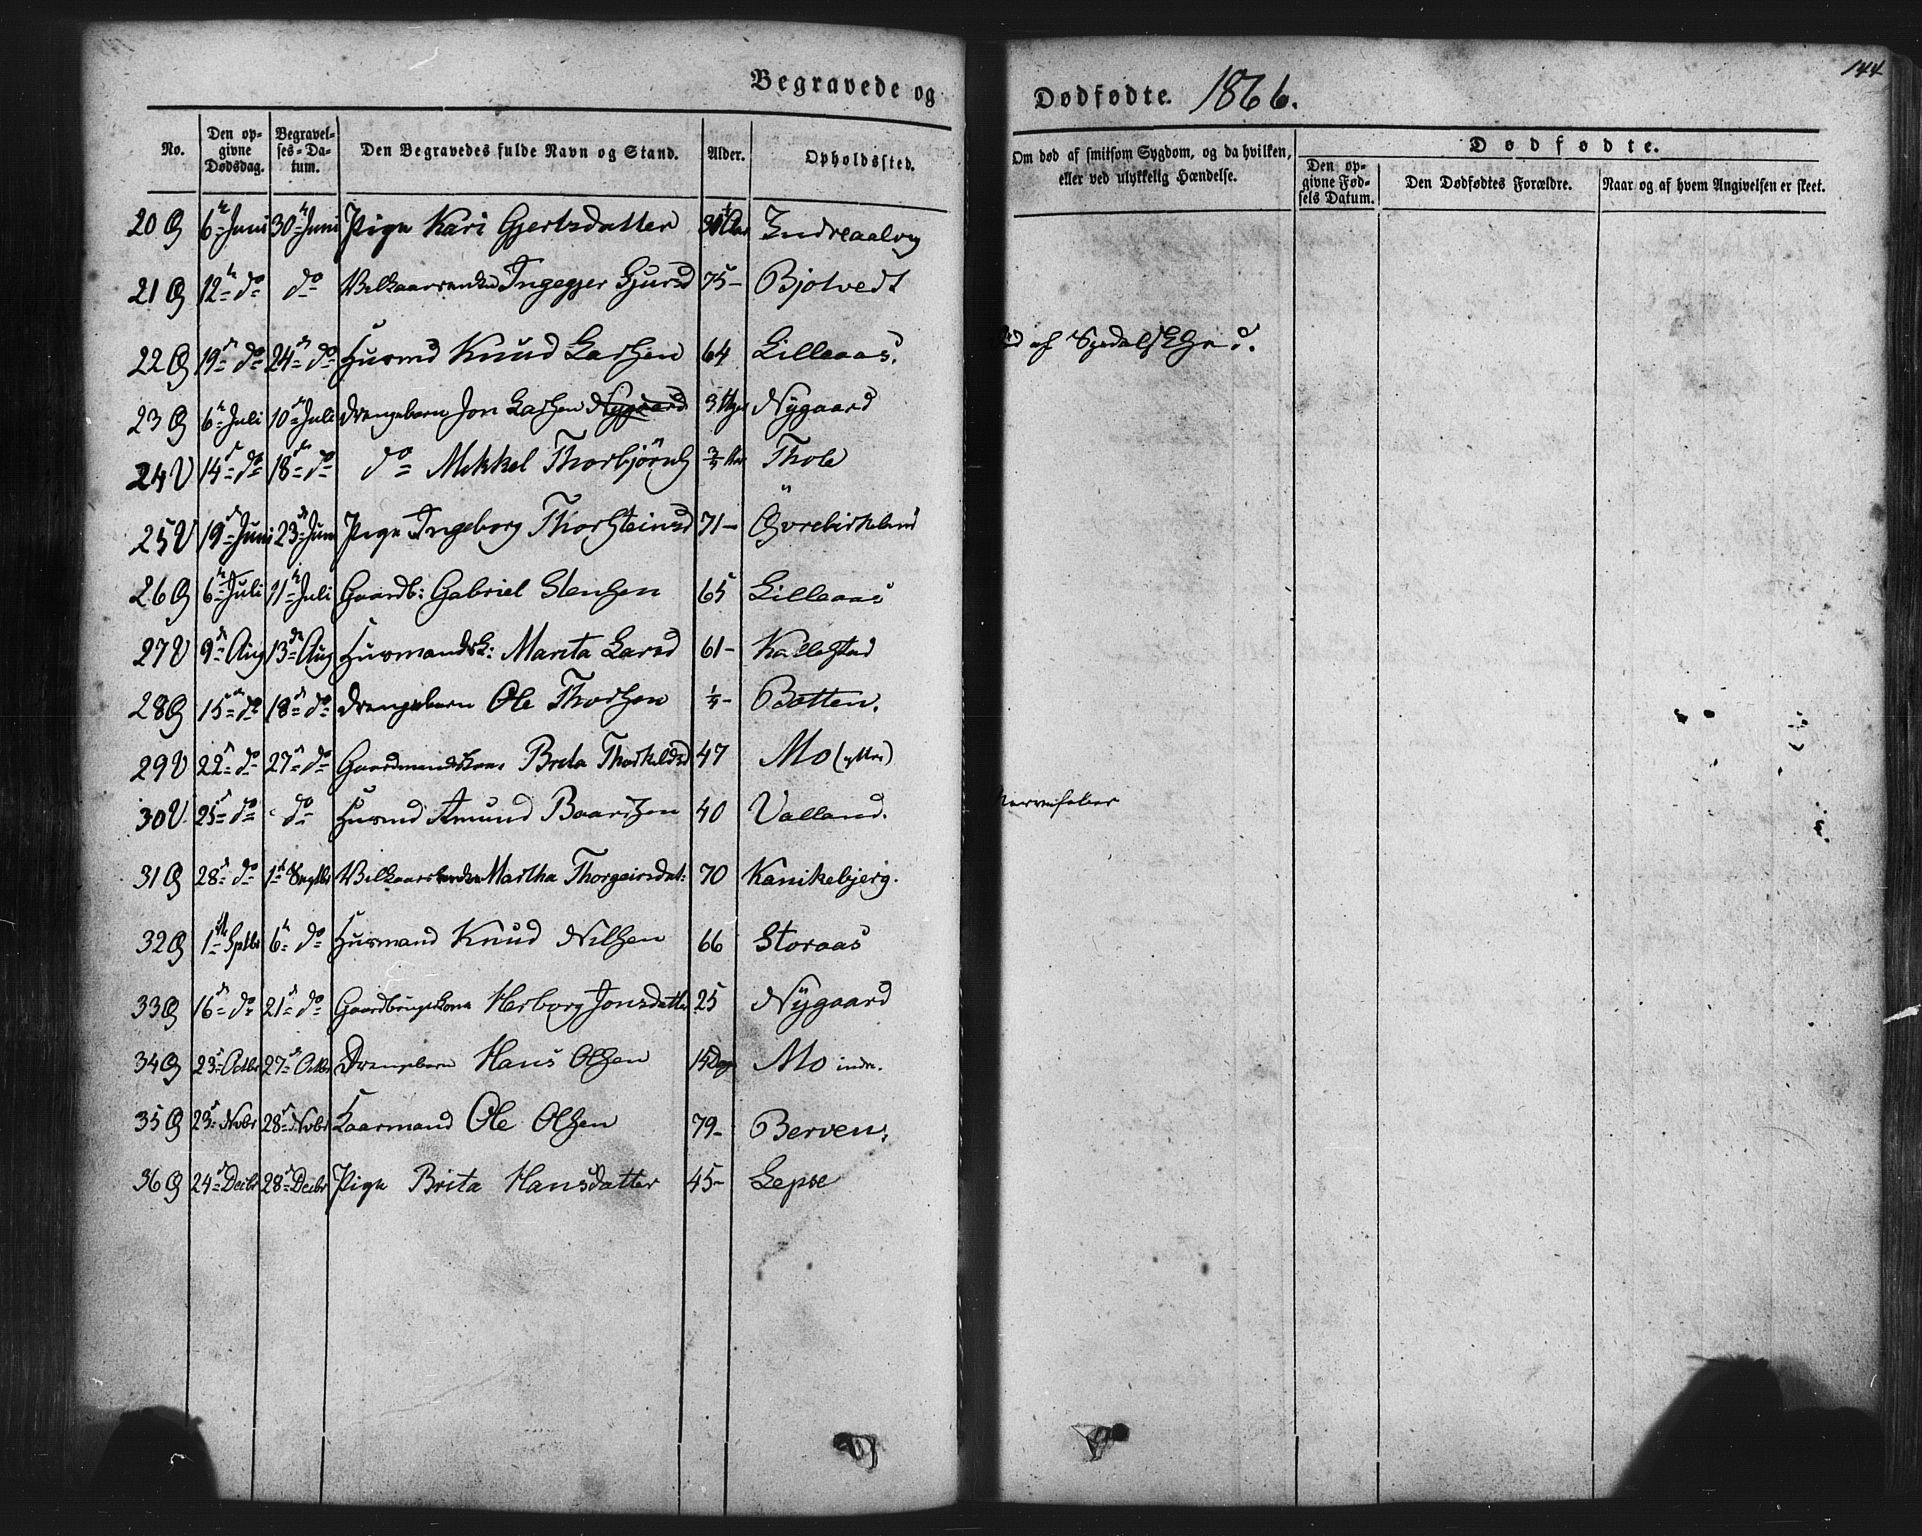 Begravede og
Dødfødte. 1866.
144
No.
Den opgivne Dødsdag.
Begravelses-Datum.
Den Begravedes fulde Navn og Stand.
Alder.
Opholdssted.
Om død af smitsom Sygdom, og da hvilken, eller ved ulykkelig Hændelse.
Dødfødte.
Den opgivne Fødsels Datum.
Den Dødfødtes Forældre.
Naar og af hvem Angivelsen er skeet.
20 G 6te Juni 30te Juni Pige Kari Gjertsdatter Indreaalvig
21 G 12te do do Vilkaarsenken Ingegjer Gjursd 75 - Bjotvedt
22 G 19de do 24de do Husmd Knud Larsen 64 Lilleaas. af Spedalskhed.
23 G 6te Juli 10de Juli Drengebarn Jon Larsen Nygaard 3 Uger Nygaard
24 V 14de do 18de do do Mikkel Thorbjørns 3/4 Aar Thole
25 V 19de Juni 23de Juni Pige Ingeborg Thorsteinsd 71 - Øvrebirkeland
26 G 6te Juli 11te Juli Gaardb: Gabriel Stensen 65 Lilleaas
27 V 9de Aug 13de Aug Husmandsk: Marita Larsd 61 - Kallestad
28 G 15de do 18de do Drengebarn Ole Thorsen 1/4 - Botten.
29 V 22de do 27de do Gaardmandskone Brita Thorkildsd 47 Mo (yttre)
30 V. 25de do do Husmd Amund Baardsen 40 Valland. Nervefeber
31 G 28de do 1ste Septbr Vilkaarsenken Martha Thorgeirsdat: 70 Kanikebjerg.
32 G 1ste Sptbr 6te do Husmand Knud Nilsen 66 Storaas
33 G 16de do 21de do Gaardbrugerkone Herborg Jonsdatter 25 Nygaard
34 G 23de Octbr 27de Octbr Drengebarn Hans Olsen 14 Dage Mo indre.
35 G 23de Novbr 28de Novbr Kaarmand Ole Olsen 79 - Berven.
36 G 24de Decbr 28de Decbr Pige Brita Hansdatter 45 - Lepsø